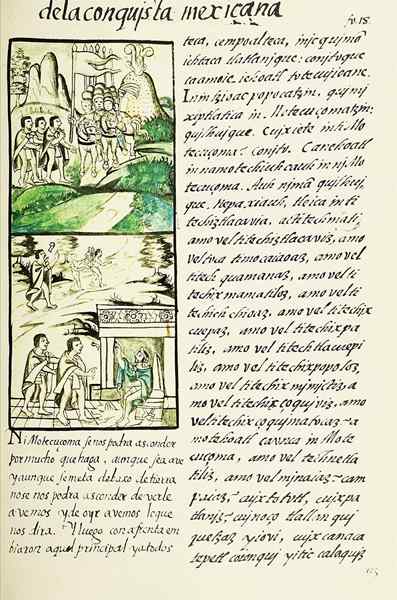 dela conquista mexicana
fo. 18.
Ni Motecuçoma se nos podra asconder
por mucho que haga, aunque sea ave
y aunque se meta debaxo de tierra
no se nos podra asconder de verle
avemos y de oyr avemos loque
nos dira. Y luego con afrenta em
biaron aquel principal y atodos
teca, cempoalteca, injc quimõ
ichtaca tlatlanjque: conjtoque
ca amo ie iehoatl totecujioane.
Injn tzioac popocatzin. quijmj
xiptlatica in Motecuçomatzin:
quilhujque. Cuix ie te in ti Mo
tecuçoma? Conjto. Ca nehoatl
in namotechiuhcauh in nj Mo
tecuçoma. Auh njmã quilhuj
que. Nepa xiauh, tle ica in ti
techiztlacavia, ac titechmati,
amo vel titechiztlacaviz, amo
vel toca timocaiaoaz, amo vel
titech quamanaz, amo vel ti
techix mamatiloz, amo vel ti
techich chioaz, amo vel titechix
cuepaz, amo vel titechixpa
tiliz, amo vel titechtlacuepi
liz, amo vel titechixpopoloz,
amo vel titechix mjmjctiz, a
mo vel titechix çoqujviz, amo
vel titechix çoqujmatocaz: a
mo tehoatl ca vnca in Mote
cuçoma, amo vel technetla
tiliz, amo vel minaiaz: cam
pa iaz: cuix tototl, cuix pa
tlanjz: cuinoço tlallan qui
quetzaz yiovi, cuix canaca
tepetl coionqui yitic calaquiz